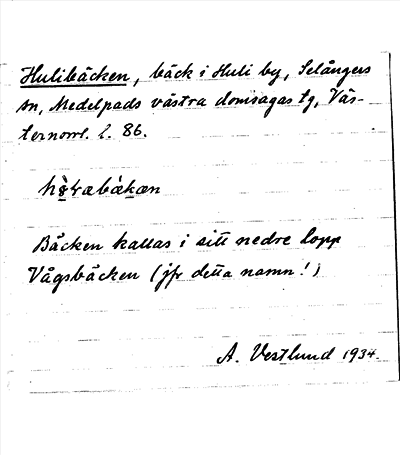 Hulibäcken, bäck i Huli by, Selångers
sn, Medelpads västra domsagas tg, Väs-
ternorrl. l. 86.
Bäcken kallas i sitt nedre lopp
Vågsbäcken (jfr detta namn!)
A. Vestlund 1934.